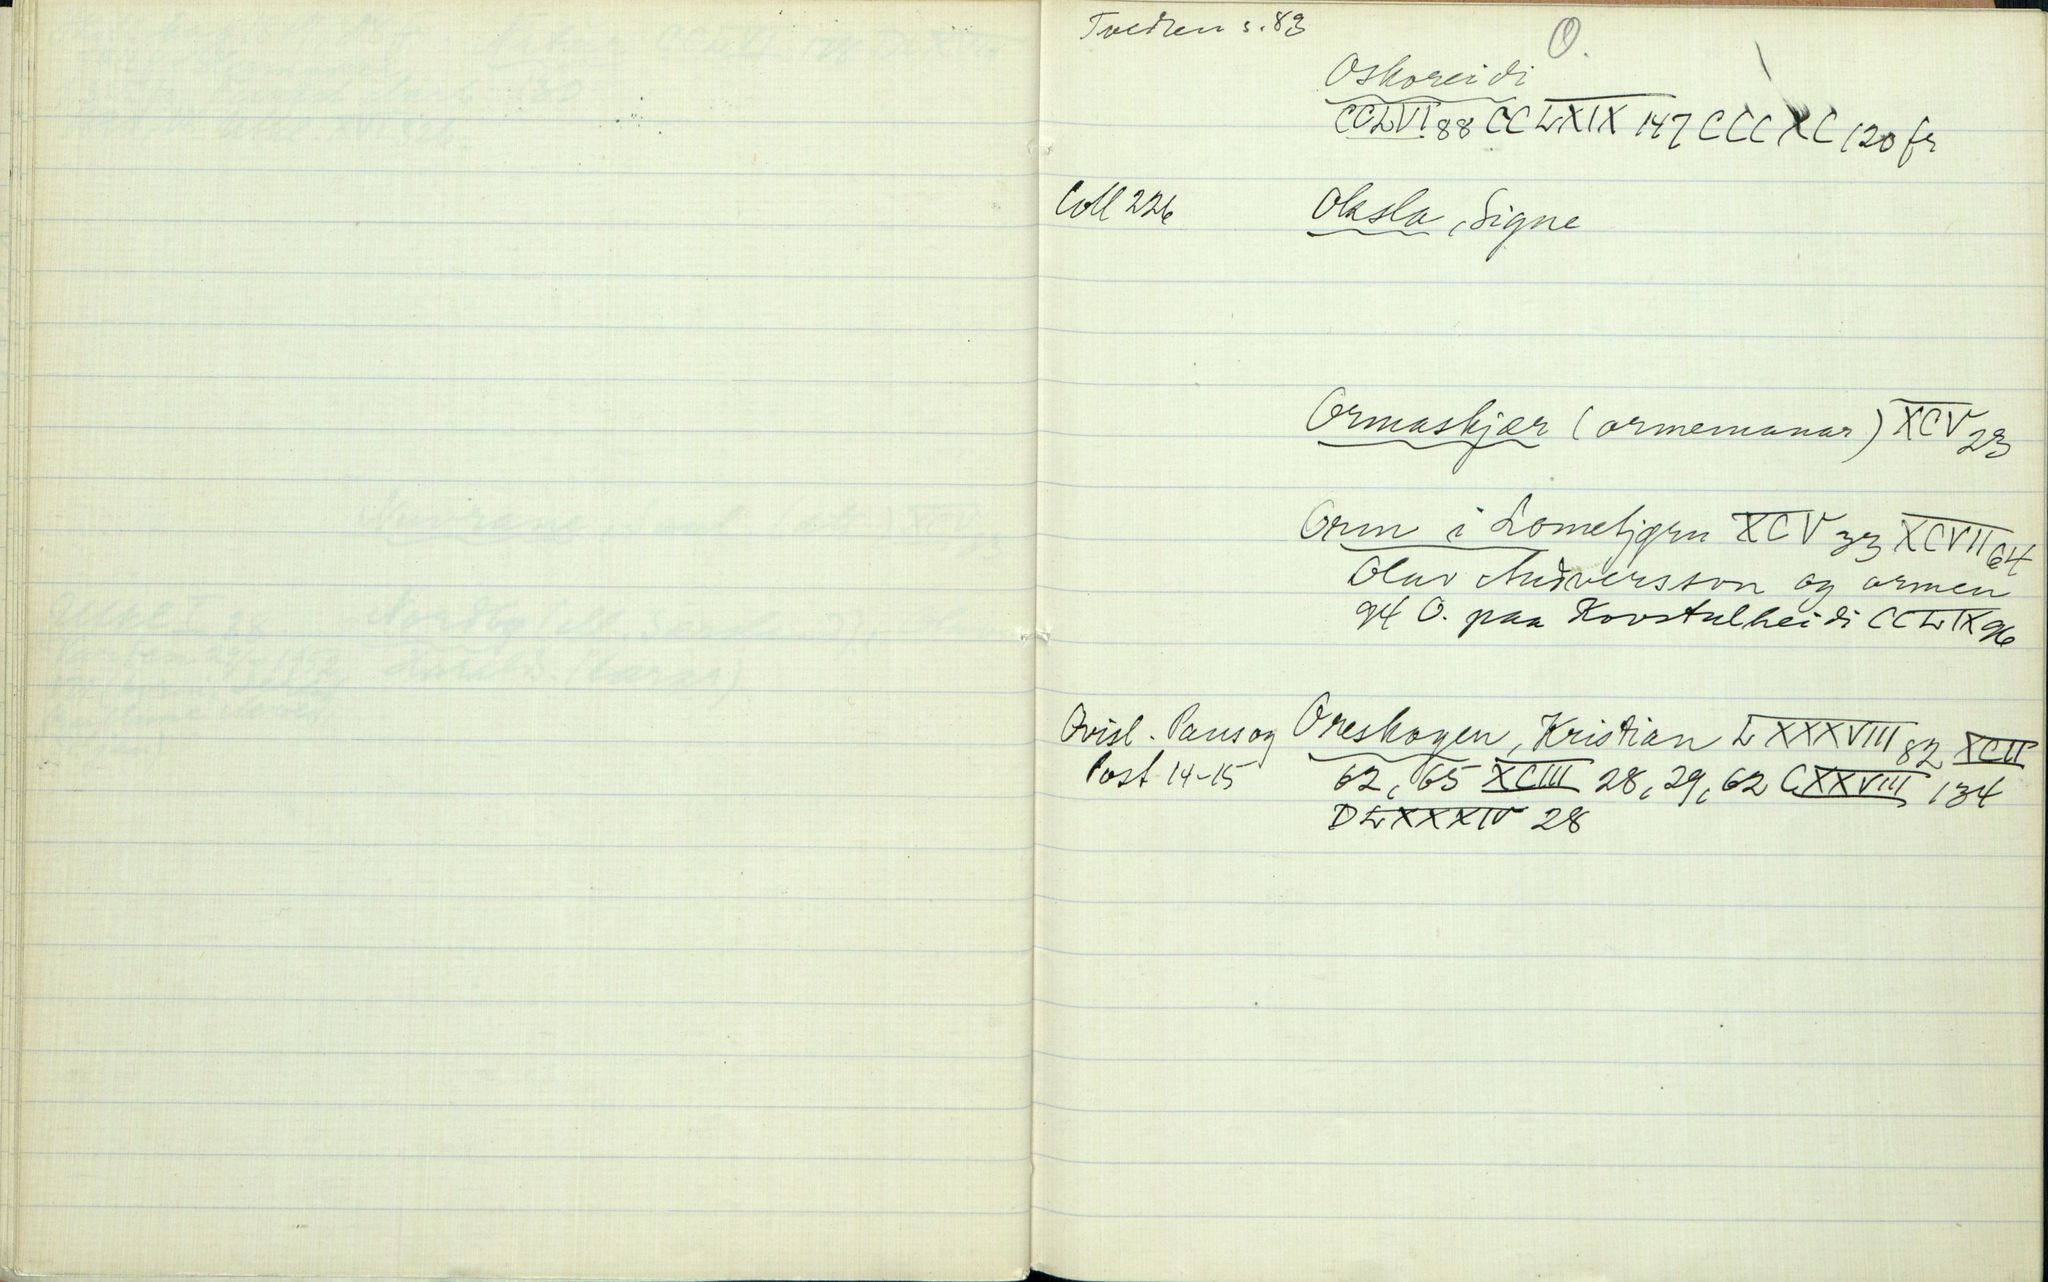 Tvedten s. 83
O.
Oskoreidi
CCLVI 88 CCLXIX 147 CCCXC 120 fr
Coll 226 Oksla, Signe
Ormaskjær (ormemanar) XCV 23
Orm i Lometjørn XCV 33 XCVII 64
Olav Andversson og ormen
94 O. paa Kovstulheidi CCLIX 96
Øvisl. Paus og Oreskogen, Kristian LXXXVIII 82 XCII
Post 14-15 62, 65 XCIII 28, 29, 62 CXXVIII 134
DLXXXIV 28